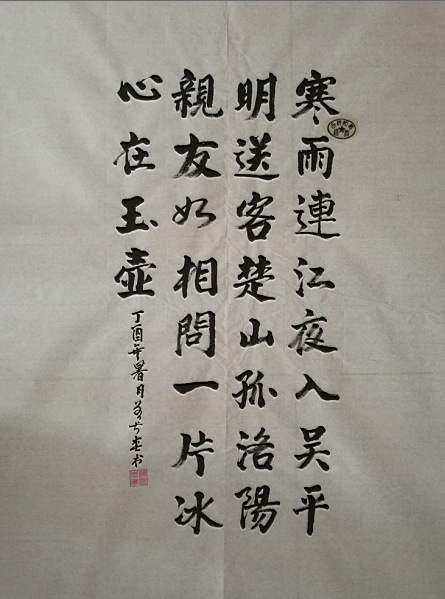 寒雨連江夜入吴平
明送客楚山孤洛陽
親友如相問一片冰
心在玉壺
丁酉年暑月